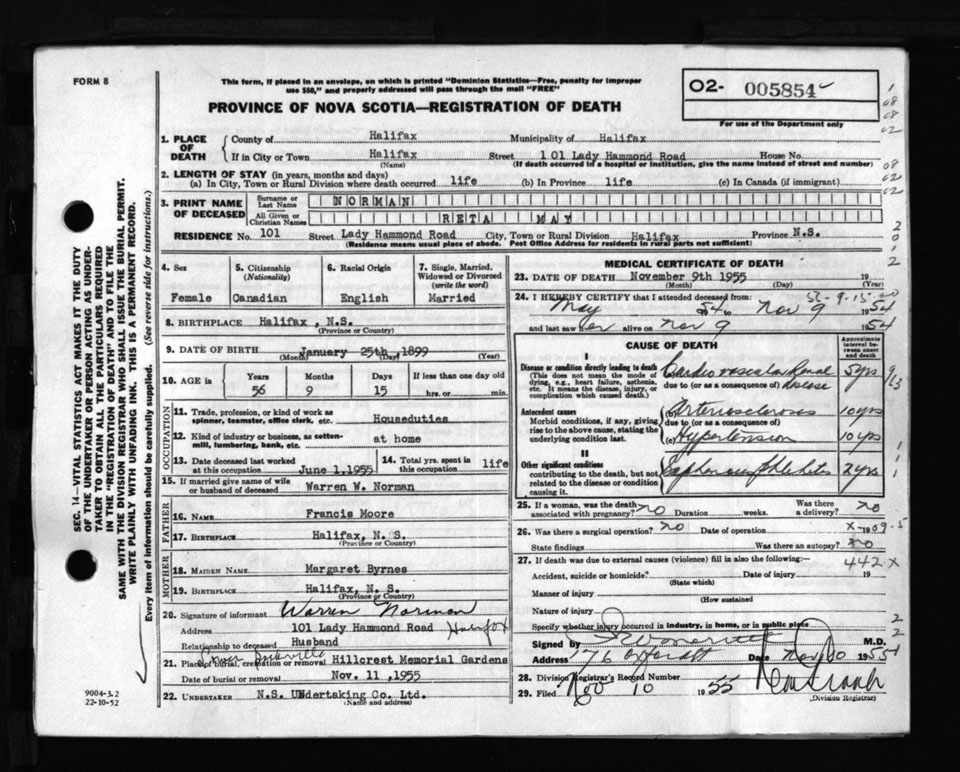 FORM 8
This form, if placed in an envelope, on which is printed "Dominion Statistics—Free, penalty for improper
use $50," and properly addressed will pass through the mail "FREE"
PROVINCE OF NOVA SCOTIA—REGISTRATION OF DEATH
02- 005854
For use of the Department only
1. PLACE OF DEATH County of Halifax Municipality of Halifax
If in City or Town Halifax Street 101 Lady Hammond Road House No.
(Name) (If death occurred in a hospital or institution, give the name instead of street and number)
2. LENGTH OF STAY (in years, months and days)
(a) In City, Town or Rural Division where death occurred life (b) In Province life (c) In Canada (if immigrant)
3. PRINT NAME OF DECEASED Surname or Last Name NORMAN
All Given or Christian Names RETA MAY
RESIDENCE No. 101 Street Lady Hammond Road City, Town or Rural Division Halifax Province N.S.
(Residence means usual place of abode. Post Office Address for residents in rural parts not sufficient)
4. Sex
Female
5. Citizenship (Nationality)
Canadian
6. Racial Origin
English
7. Single, Married, Widowed or Divorced (write the word)
Married
8. BIRTHPLACE Halifax, N.S.
(Province or Country)
9. DATE OF BIRTH January 25th, 1899
(Month) (Day) (Year)
10. AGE in Years Months Days If less than one day old
56 9 15 hrs. or min.
OCCUPATION
11. Trade, profession, or kind of work as spinner, teamster, office clerk, etc. Houseduties
12. Kind of industry or business, as cotton-mill, lumbering, bank, etc. at home
13. Date deceased last worked at this occupation June 1,1955 14. Total yrs. spent in this occupation life
15. If married give name of wife or husband of deceased Warren W. Norman
FATHER
16. NAME Francis Moore
17. BIRTHPLACE Halifax, N. S.
(Province or Country)
MOTHER
18. MAIDEN NAME Margaret Byrnes
19. BIRTHPLACE Halifax, N. S.
(Province or Country)
20. Signature of informant Warren Norman
Address 101 Lady Hammond Road Halifax
Relationship to deceased Husband
21. Place of burial, cremation or removal Hillcrest Memorial Gardens
Date of burial or removal Nov. 11 ,1955
22. UNDERTAKER N.S. Undertaking Co. Ltd.
(Name and address)
MEDICAL CERTIFICATE OF DEATH
23. DATE OF DEATH November 9th 1955 19
(Month) (Day) (Year)
24. I HEREBY CERTIFY that I attended deceased from:
May 1954 to Nov 9 1954
and last saw her alive on Nov 9 1954
CAUSE OF DEATH
Approximate interval between onset and death
I
Disease or condition directly leading to death
(This does not mean the mode of dying, e.g., heart failure, asthenia, etc. It means the disease, injury, or complication which caused death.)
(a) Cardio vascular Renal disease 5 yrs
due to (or as a consequence of)
Antecedent causes
Morbid conditions, if any, giving rise to the above cause, stating the underlying condition last.
(b) Arteriosclerosis 10 yrs
due to (or as a consequence of)
(c) Hypertension 10 yrs
II
Other significant conditions
contributing to the death, but not related to the disease or condition causing it.
Saphenous phlebitis 2 yrs
25. If a woman, was the death associated with pregnancy? no Duration weeks. Was there a delivery? no
26. Was there a surgical operation? no Date of operation 19
State findings Was there an autopsy? no
27. If death was due to external causes (violence) fill in also the following:— 442 x
Accident, suicide or homicide? Date of injury 19
(State which)
Manner of injury
(How sustained
Nature of injury
Specify whether injury occurred in industry, in home, or in public place
Signed by M.D.
Address 76 Date Nov 10 1955
28. Division Registrar's Record Number
29. Filed Nov 10 1955
(Division Registrar)
SEC. 14—VITAL STATISTICS ACT MAKES IT THE DUTY
OF THE UNDERTAKER OR PERSON ACTING AS UNDER-
TAKER TO OBTAIN ALL THE PARTICULARS REQUIRED
IN THE "REGISTRATION OF DEATH" AND TO FILE THE
SAME WITH THE DIVISION REGISTRAR WHO SHALL ISSUE THE BURIAL PERMIT.
WRITE PLAINLY WITH UNFADING INK. THIS IS A PERMANENT RECORD.
Every item of information should be carefully supplied. (See reverse side for instructions.)
9004-3.2
22-10-52